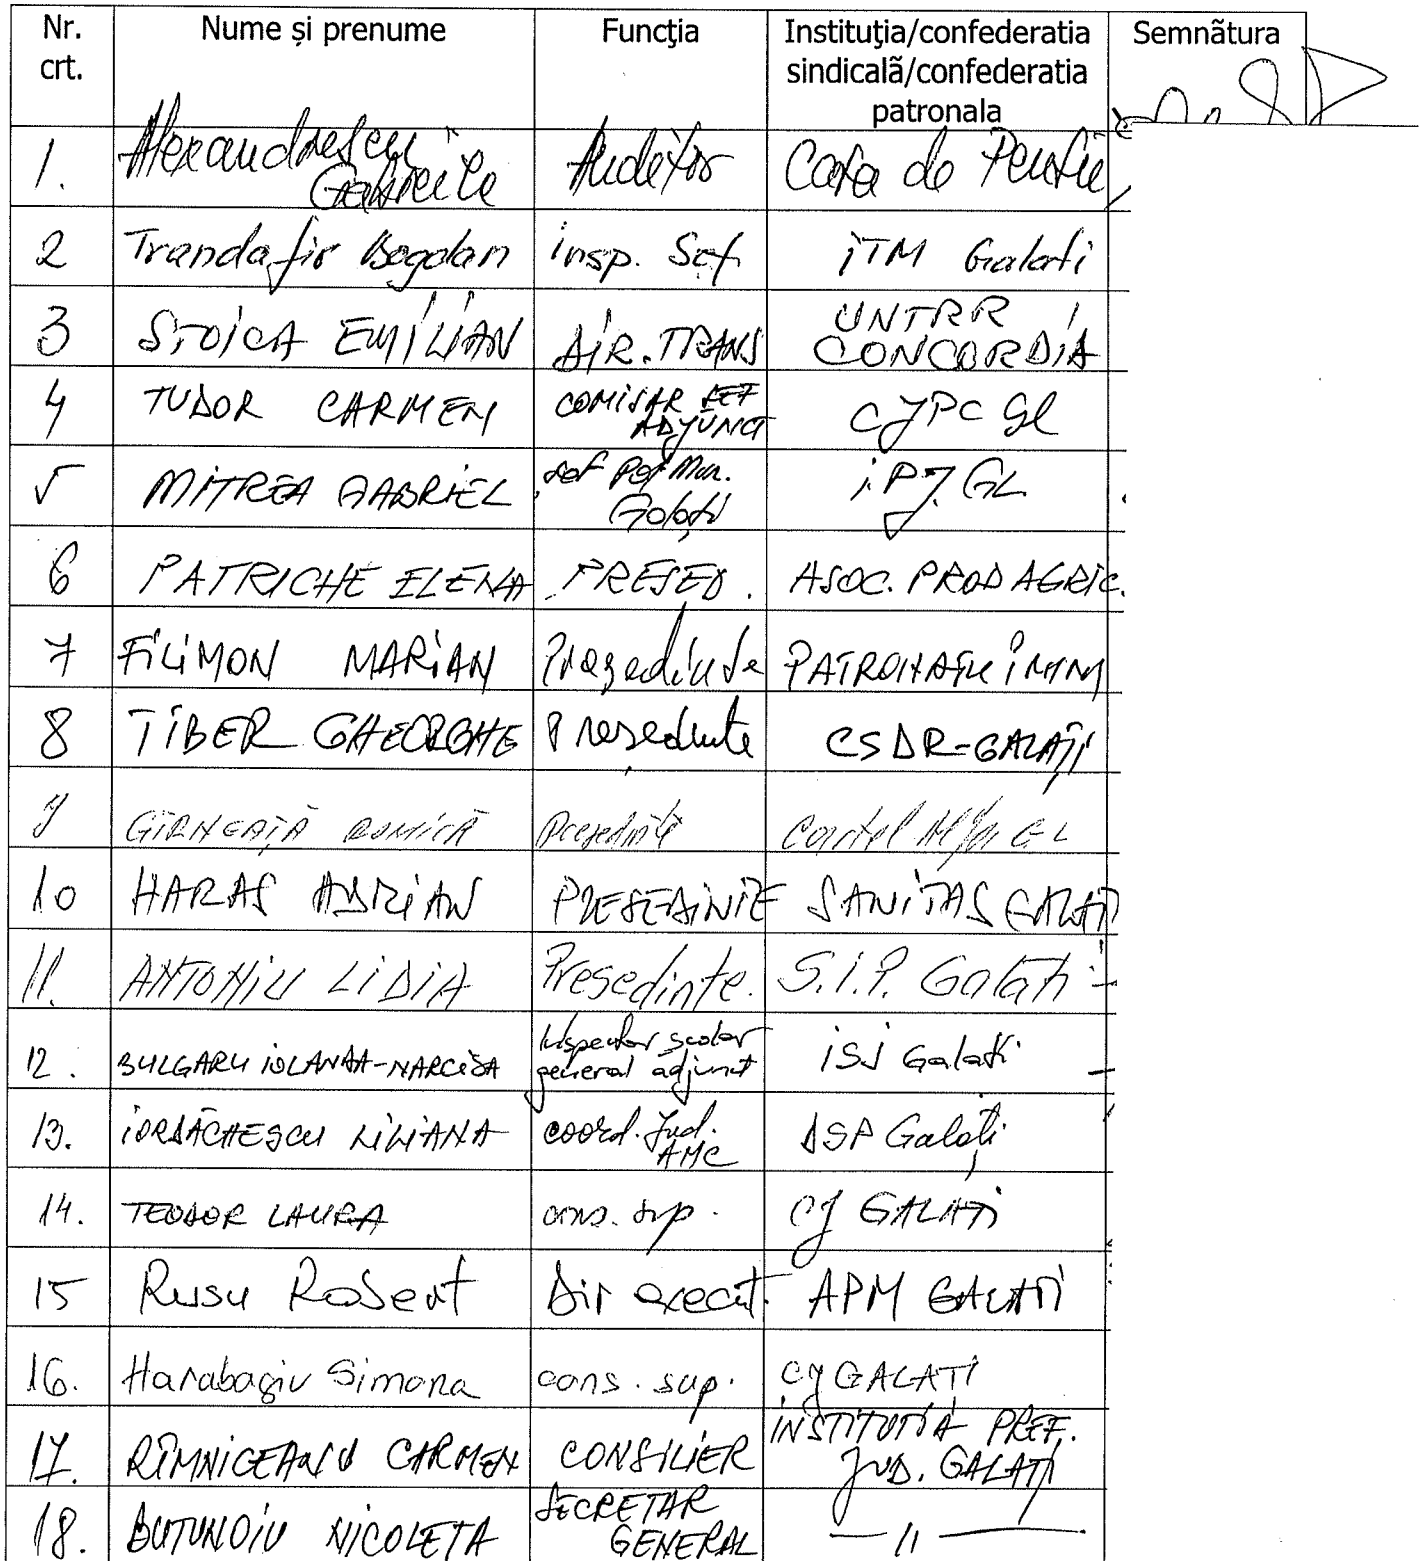 Nr. crt. Nume și prenume Funcţia Instituţia/confederatia sindicalã/confederatia patronala Semnãtura
1. Alexandrescu Gabriela Auditor Casa de Pensii
2 Trandafir Bogdan insp. Sef iTM Galati
3 STOICA EMILIAN DIR. TRANS UNTRR / CONCORDIA
4 TUDOR CARMEN COMISAR SEF ADJUNCT CJPC Gl
5 MITREA GABRIEL sef Pol Mun. Galați I.P.J. GL
6 PATRICHE ELENA PRESED. ASOC. PROD AGRIC.
7 FILIMON MARIAN Președinte PATRONATUL IMM
8 TIBER GHEORGHE Președinte CSDR-GALAȚI
9 GÎRNEAȚĂ ROMICĂ Președinte Cartel Alfa GL
10 HARAS ADRIAN PRESEDINTE SANITAS GALATI
11. ANTONIU LIDIA Presedinte. S.I.P. Galati
12. BULGARU IOLANDA-NARCISA Inspector scolar general adjunct ISJ Galati
13. IORDĂCHESCU LILIANA coord. Jud. AMC DSP Galați
14. TEODOR LAURA cons. sup. CJ GALATI
15 Rusu Robert Dir execut. APM GALATI
16. Harabagiu Simona cons. sup. CJ GALATI
17. RÎMNICEANU CARMEN CONSILIER INSTITUTIA PREF. JUD. GALAȚI
18. BUTUNOIU NICOLETA SECRETAR GENERAL — 11 —